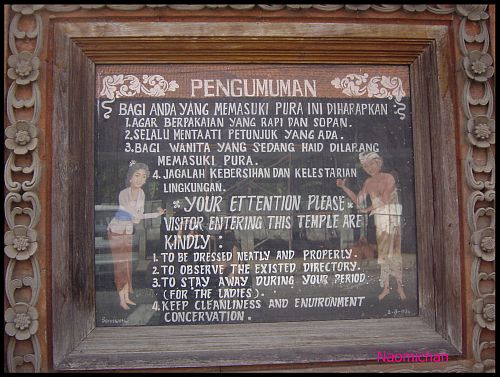 PENGUMUMAN
BAGI ANDA YANG MEMASUKI PURA INI DIHARAPKAN :
1. AGAR BERPAKAIAN YANG RAPI DAN SOPAN.
2. SELALU MENTAATI PETUNJUK YANG ADA.
3. BAGI WANITA YANG SEDANG HAID DILARANG
MEMASUKI PURA.
4. JAGALAH KEBERSIHAN DAN KELESTARIAN
LINGKUNGAN.
YOUR ETTENTION PLEASE
VISITOR ENTERING THIS TEMPLE ARE
KINDLY :
1. TO BE DRESSED NEATLY AND PROPERLY.
2. TO OBSERVE THE EXISTED DIRECTORY.
3. TO STAY AWAY DURING YOUR PERIOD
(FOR THE LADIES).
4. KEEP CLEANLINESS AND ENVIRONMENT
CONCERVATION.
Naomichan